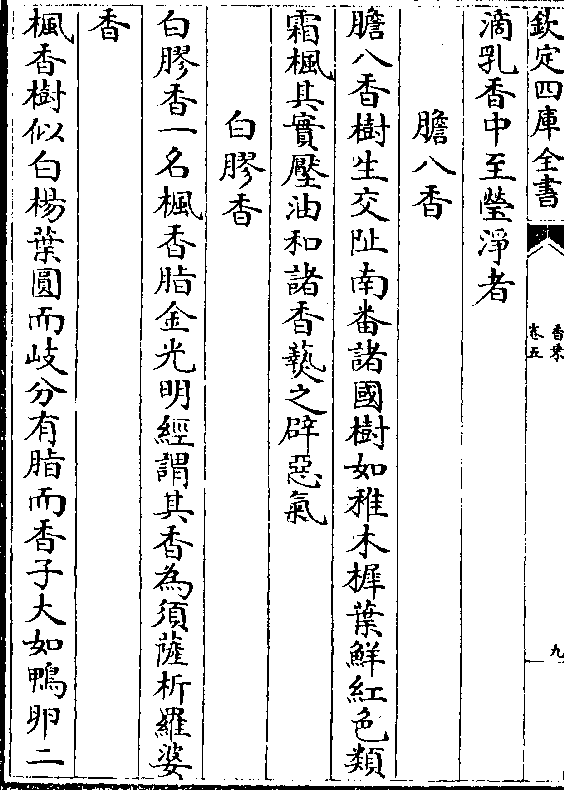 欽定四庫全書
香乘
卷五
九
滴乳香中至瑩淨者
膽八香
膽八香樹生交阯南番諸國樹如稚木樨葉鮮紅色類
霜楓其實壓油和諸香爇之辟惡氣
白膠香
白膠香一名楓香脂金光明經謂其香為須薩析羅婆
香
楓香樹似白楊葉圓而岐分有脂而香子大如鴨卵二